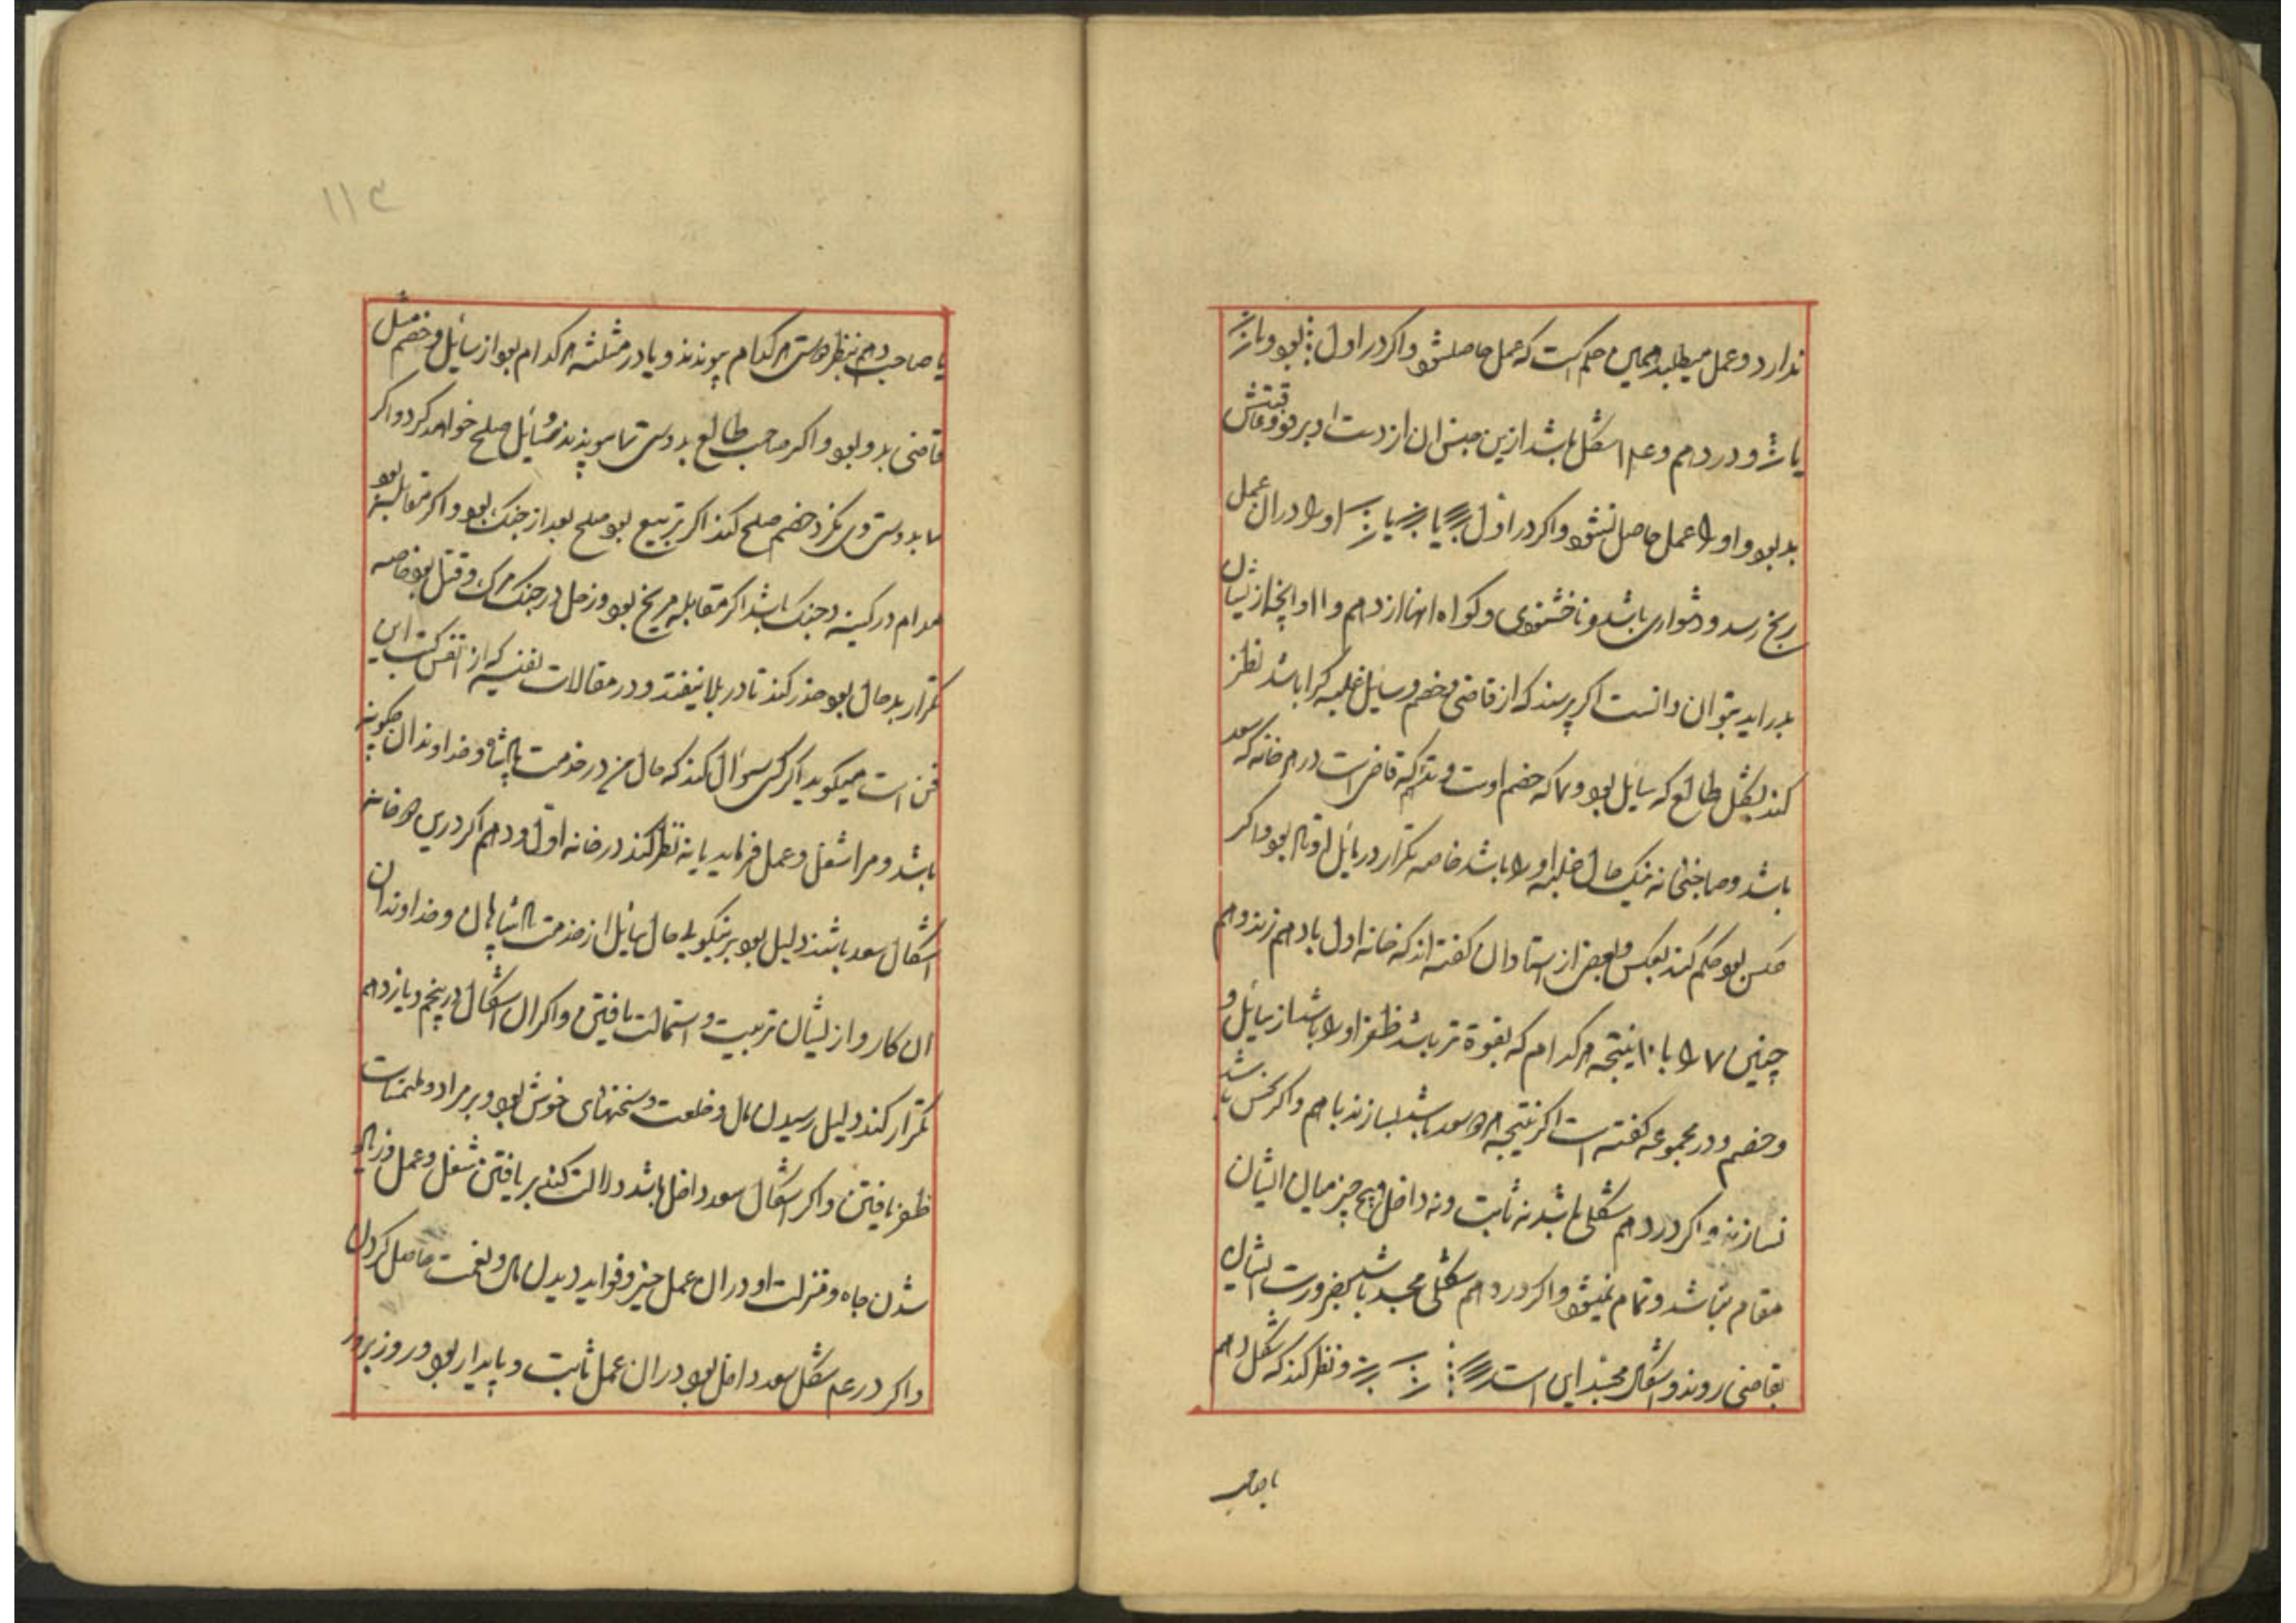 ندارد و عمل میطلبد همین حکم است که عمل حاصل شود و اکر در اول بود و یا
یا و در دهم و عمل اشکال باشد ازین جنس ان از دست او برود و عاقبتش
بد بود و او را عمل حاصل نشود و اکر در اول یا یا او را در ان عمل
رنج رسد و دشواری باشد و ناخشنودی و کواه انها از دهم و ۱۱ و انچه از نشان
بدر اید بتوان دانست اکر پرسند که از قاضی و خصم و سایل غلبه کرا باشد نظر
کند بشکل طالع که سایل بود و ۷ که خصم اوست و که قاضی است در هر خانه که سعد
باشد و صاحبخانه نیک حال غلبه او را باشد خاصه تکرار در بود و اکر
عکس بود حکم کند بعکس و بعضی از استادان کفته اند که خانه اول با دهم زند و هم
چنین ۷ را با ۱۰ نتیجه هر کدام که بقوة تر باشد ظفر او را باشد از سایل و
و خصم و در مجموعه کفته است اکر نتیجه هر دو سعد باشد بسازند با هم و اکر نحس باشد
نسازند و اکر در دهم شکلی باشد نه ثابت و نه داخل هیچ چیز میان ایشان
مقام نباشد و تمام نمیشود و اکر در دهم شکلی باشد بضرورت ایشان
بقاضی روند و اشکال این است و نظر کند که شکل دهم
یا صاحب
۱۱۳
یا صاحب دهم بنظر دوستی هر کدام پیوندند و یا در مثلثه هر کدام بود از سایل و خصم میل
قاضی بدو بود و اکر صاحب طالع بدوستی ۷ پیوندند سایل صلح خواهد کرد و اکر
۷ بدوستی وی نکرد خصم صلح کند اکر تربیع بود صلح بعد از جنک بود و اکر مقابله بود
مدام در کینه و جنک باشد اکر مقابله مریخ بود و زحل در جنک مرک و قتل بود خاصه
تکرار بد حال بود حذر کند تا در بلا نیفتد و در مقالات که از کتب این
فن است میکوید اکر کسی سؤال کند که حال من در خدمت پادشاه و خداوندان چکونه
باشد و مرا شغل و عمل فرماید یا نه نظر کند در خانه اول و دهم اکر درین دو خانه
اشکال سعد باشند دلیل بود بر نیکویی حال سایل از خدمت پادشاهان و خداوندان
ان کار و از ایشان تربیت و استمالت یافتن و اکر ان اشکال در پنجم و یازدهم
تکرار کند دلیل رسیدن مال و خلعت و سخنهای خوش بود و بر مراد و ملتمسات
ظفر یافتن و اکر اشکال سعد داخل باشد دلالت کند بر یافتن شغل و عمل و زیاد
شدن جاه و منزلت او در ان عمل خیر و فواید دیدن مال و نعمت حاصل کردن
و اکر در شکل سعد داخل بود در ان عمل ثابت و پایدار بود و روز بروز